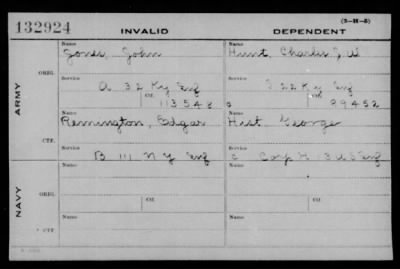 (3-H-5)
132924 INVALID DEPENDENT
Name Name
Jones, John Hunt, Charles J. W
ORIG.
Service Service
A 32 Ky Inf I 22 Ky Inf
Ctf. Ctf.
113548 c 89452
ARMY
Name Name
Remington, Edgar Hist George
CTF.
Service
B 111 N Y Inf c Corp H 13 U S Inf
Name Name
ORIG.
Service Service
Ctf. Ctf.
NAVY
Name Name
CTF.
Service Service